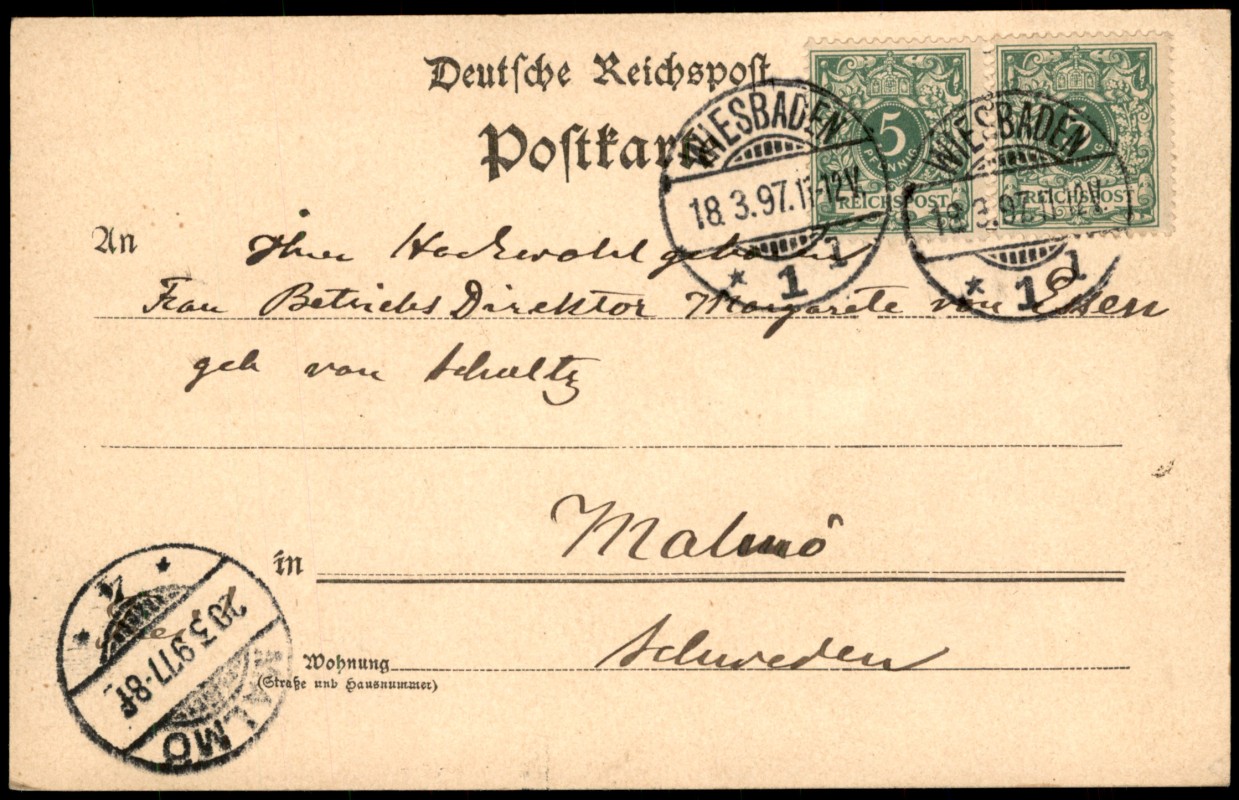 Deutsche Reichspost
Postkarte
5
PFENNIG
REICHSPOST
5
PFENNIG
REICHSPOST
WIESBADEN
18.3.97.11-12V.
* 1 1
WIESBADEN
18.3.97.11-12V.
* 1 1
An Ihrer Hochwohlgeboren
Frau Betriebs Direktor Margarete von Essen
geb von Schultz
in Malmö
Schweden
Wohnung
(Straße und Hausnummer)
MALMÖ
20.3.97 7-8F